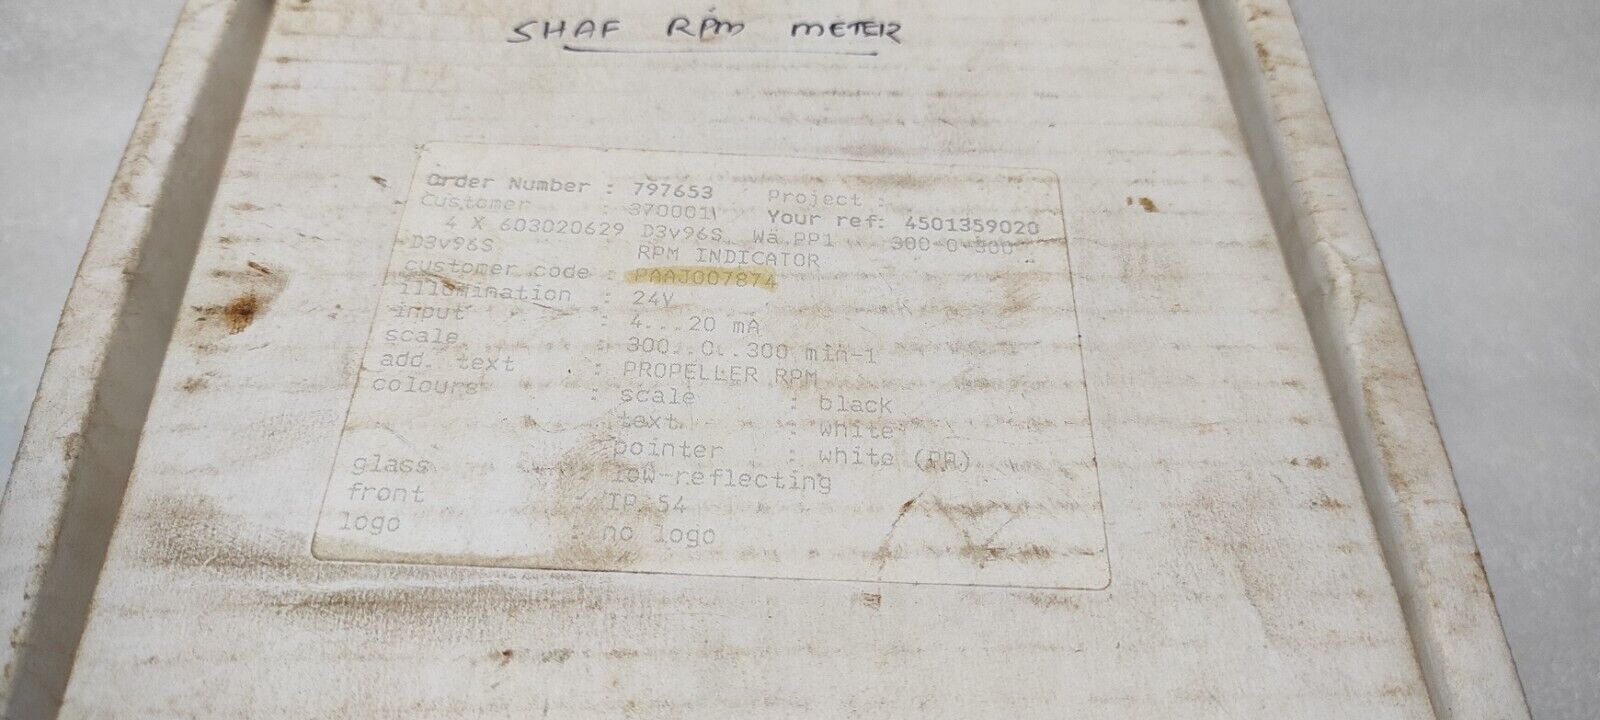 SHAF RPM METER
Order Number : 797653 Project :
Customer : 370001 Your ref: 4501359020
4 X 603020629 D3v96S Wä PP1 300-0-300
D3v96S RPM INDICATOR
customer code : PAAJ007874
illumination : 24V
input : 4...20 mA
scale : 300..0..300 min-1
add. text : PROPELLER RPM
colours : scale : black
text : white
pointer : white (PA)
glass : low-reflecting
front : IP 54
logo : no logo